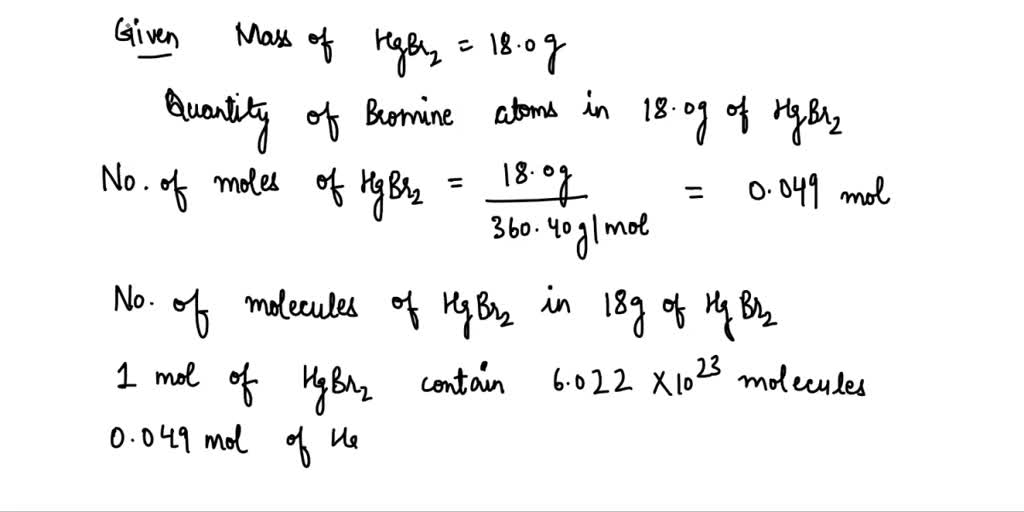 Given Mass of HgBr₂ = 18.0g
Quantity of Bromine atoms in 18.0g of HgBr₂
No. of moles of HgBr₂ = 18.0g / 360.40g/mol = 0.049 mol
No. of molecules of HgBr₂ in 18g of HgBr₂
1 mol of HgBr₂ contain 6.022 X10²³ molecules
0.049 mol of He